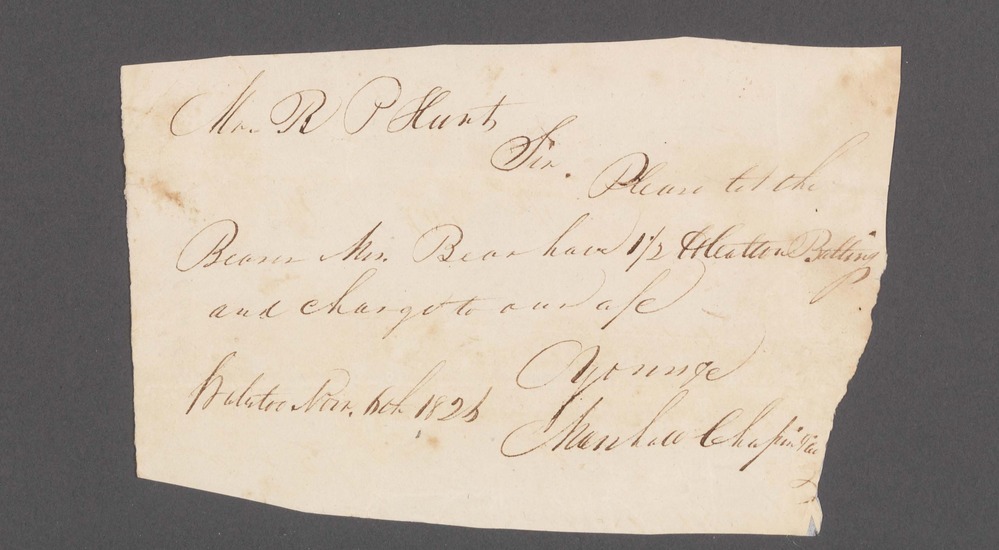 Mr. R P Hunt
Sir.
Please let the
Bearer Mr. Bear have 1 1/2 lb Cotton Batting
and charge to our a/c
Yours &c
Marshall Chapin
Nov. 6th 182